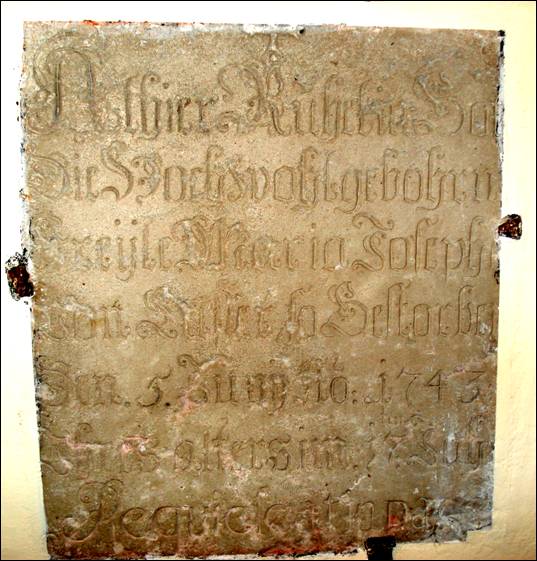 Althier Ruhet in
Die Hochwohlgebohrn
Freÿle Maria Joseph
von so Gestorben
Den. 5. Junÿ 1743
Ihres alters im. 17. Jahr
Requiescat in pace